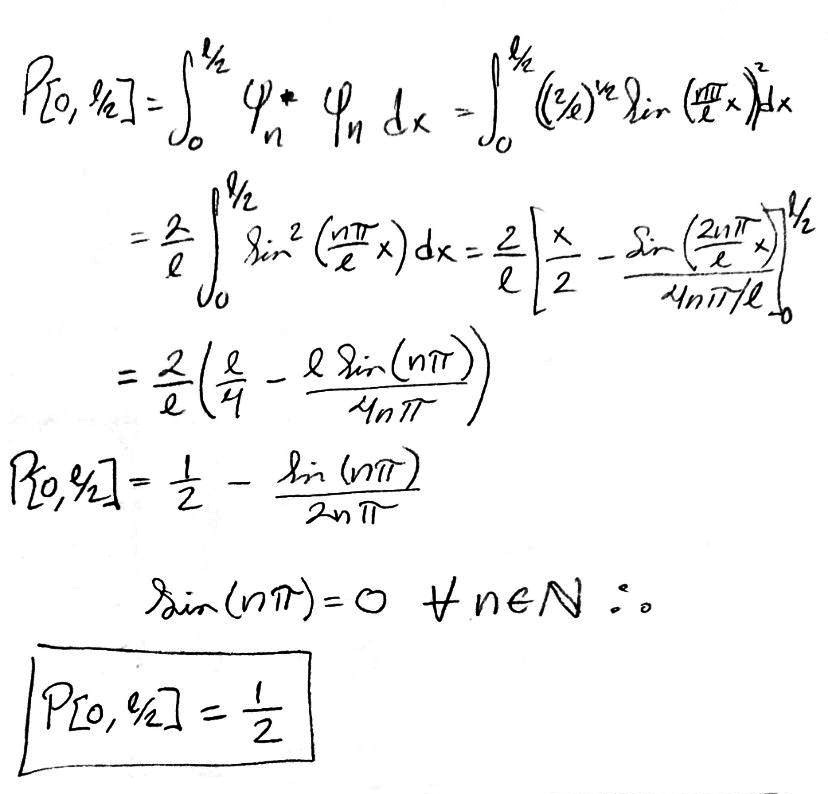 P[0, ℓ/2] = ∫₀^{ℓ/2} φₙ* φₙ dx = ∫₀^{ℓ/2} ((2/ℓ)^{1/2} Sin (nπ/ℓ x))² dx
= 2/ℓ ∫₀^{ℓ/2} Sin² (nπ/ℓ x) dx = 2/ℓ [x/2 - Sin (2nπ/ℓ x) / 4nπ/ℓ]₀^{ℓ/2}
= 2/ℓ (ℓ/4 - ℓ Sin(nπ) / 4nπ)
P[0, ℓ/2] = 1/2 - Sin (nπ) / 2nπ
Sin(nπ) = 0 ∀ n∈ℕ ∴
P[0, ℓ/2] = 1/2